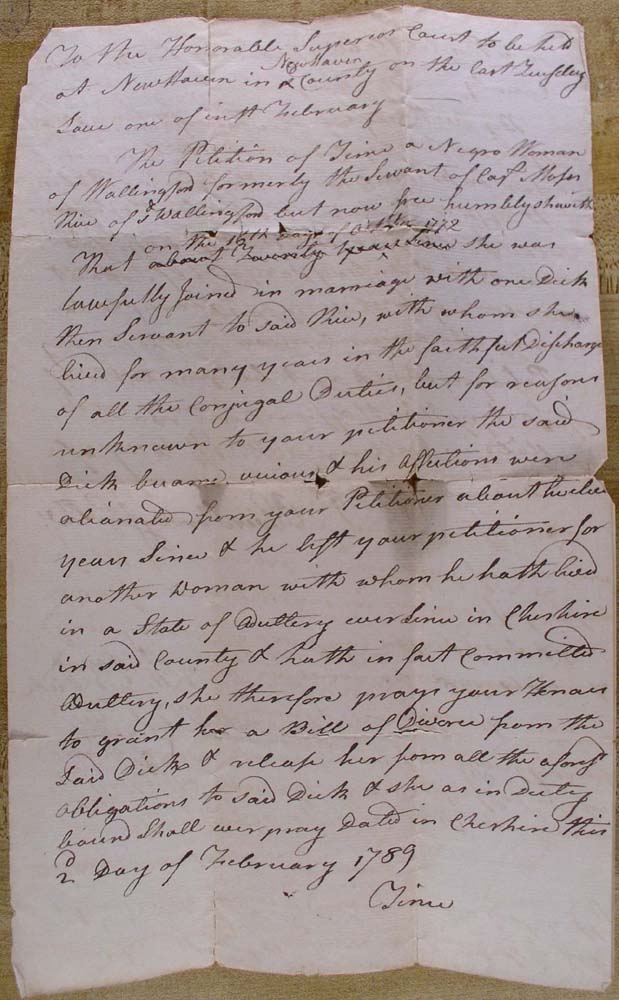 To the Honorable Superior Court to be held
NewHaven
at NewHaven in & County on the last Tuesday
save one of inst February
The Petition of Time a Negro Woman
of Wallingford formerly the Servant of Capt Moses
Rice of sd Wallingford but now free humbly sheweth
on the day of 1772
That about Twenty Years Since she was
lawfully Joined in marriage with one Dick
then Servant to said Rice, with whom she
lived for many years in the faithful Discharge
of all the Conjugal Duties, but for reasons
unknown to your petitioner the said
Dick became vicious & his Affections were
alianated from your Petitioner about twelve
years Since & he left your petitioner for
another Woman with whom he hath lived
in a State of Adultery ever Since in Cheshire
in said County & hath in fact Committed
Adultery, she therefore prays your Honors
to grant her a Bill of Divorce from the
said Dick & release her from all the aforesd
obligations to said Dick & she as in Duty
bound Shall ever pray Dated in Cheshire this
2d Day of February 1789
Time